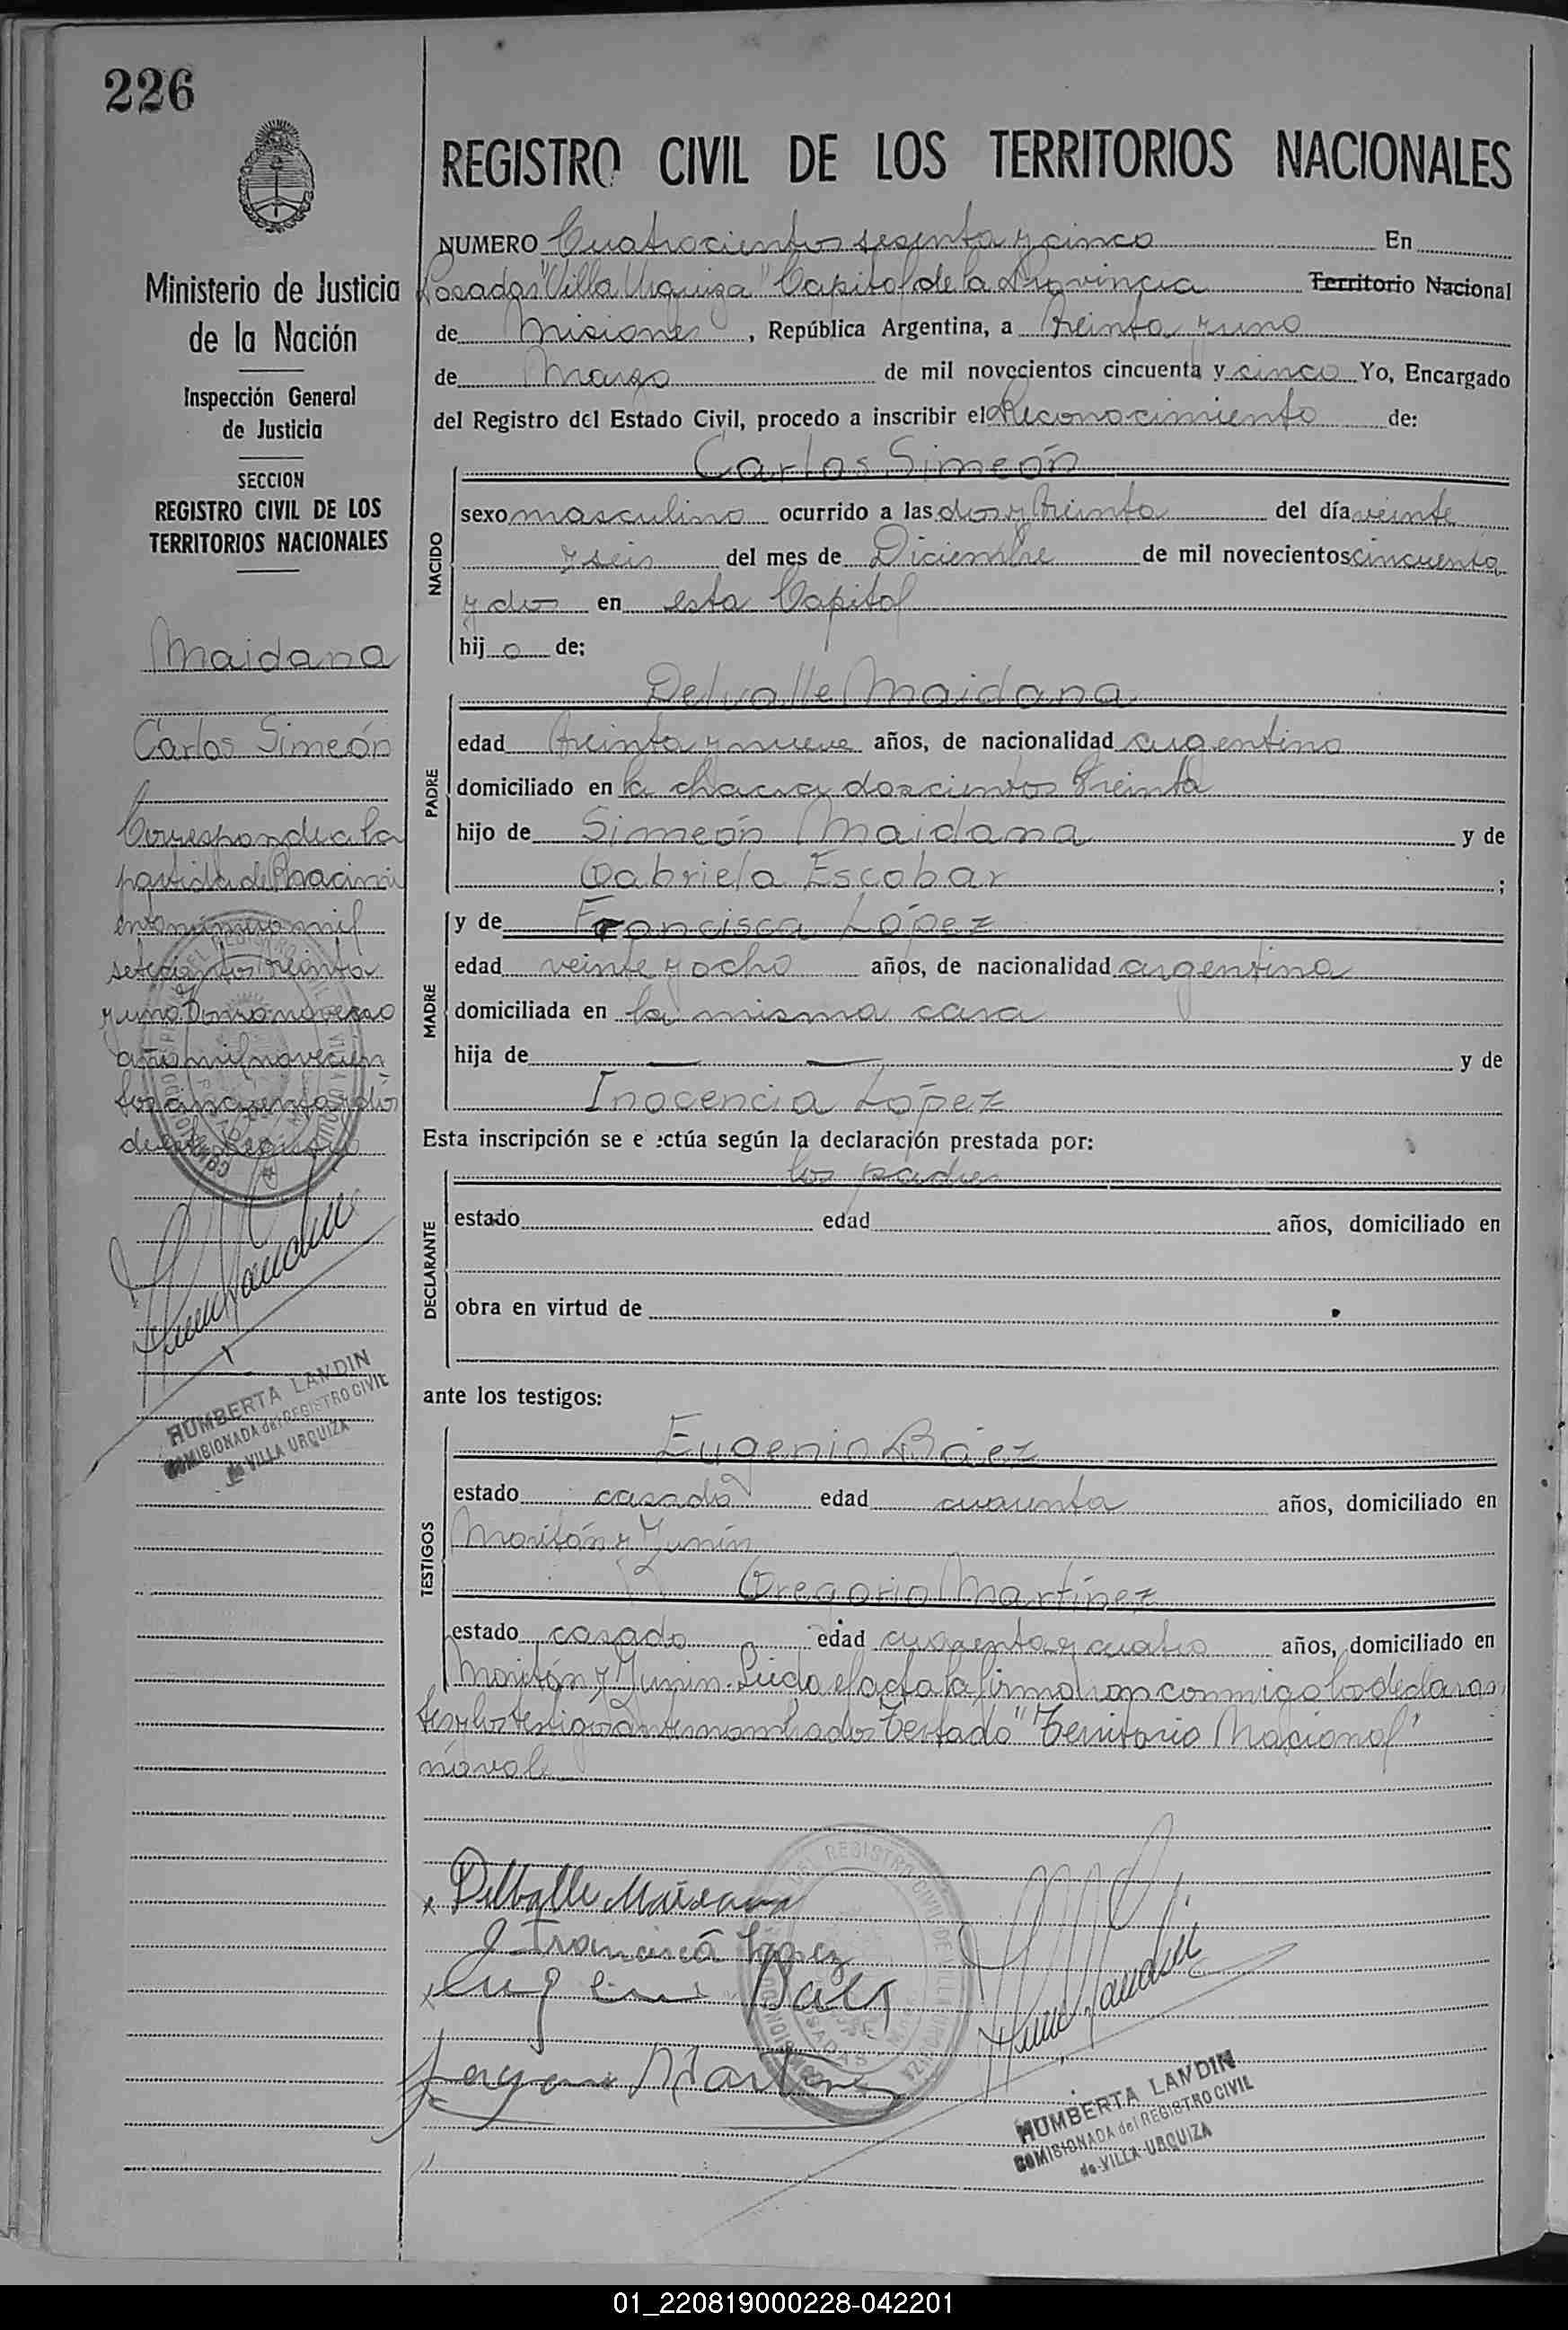 226
REGISTRO CIVIL DE LOS TERRITORIOS NACIONALES
Ministerio de Justicia
de la Nación
Inspección General
de Justicia
SECCION
REGISTRO CIVIL DE LOS
TERRITORIOS NACIONALES
Maidana
Carlos Simeón
Corresponde a la
partida de nacimi
ento número mil
setecientos treinta
y uno Tomo noveno
año mil novecien
tos cincuenta y dos
de este Registro
HUMBERTA LANDIN
COMISIONADA del REGISTRO CIVIL
de VILLA URQUIZA
NUMERO Cuatrocientos sesenta y cinco En
Posadas "Villa Urquiza" Capital de la Provincia Territorio Nacional
de Misiones, República Argentina, a treinta y uno
de Marzo de mil novecientos cincuenta y cinco Yo, Encargado
del Registro del Estado Civil, procedo a inscribir el Reconocimiento de:
NACIDO
Carlos Simeón
sexo masculino ocurrido a las dos y treinta del día veinte
y seis del mes de Diciembre de mil novecientos cincuenta
y dos en esta Capital
hij o de:
PADRE
Delvalle Maidana
edad treinta y nueve años, de nacionalidad argentino
domiciliado en la chacra doscientos treinta
hijo de Simeón Maidana y de
Gabriela Escobar ;
MADRE
y de Francisca López
edad veinte y ocho años, de nacionalidad argentina
domiciliada en la misma casa
hija de — — y de
Inocencia López
Esta inscripción se e ectúa según la declaración prestada por:
DECLARANTE
los padres
estado edad años, domiciliado en
obra en virtud de
ante los testigos:
TESTIGOS
Eugenio Báez
estado casado edad cuarenta años, domiciliado en
Moritán y Junín
Gregorio Martínez
estado casado edad cuarenta y cuatro años, domiciliado en
Moritán y Junín. Leída el acta la firmaron conmigo los declaran
tes y los testigos antes nombrados Testado "Territorio Nacional"
no vale
Delballe Maidana
Francisca Lopez
Eugenio Baez
Martinez
HUMBERTA LANDIN
COMISIONADA del REGISTRO CIVIL
de VILLA URQUIZA
01_220819000228-042201